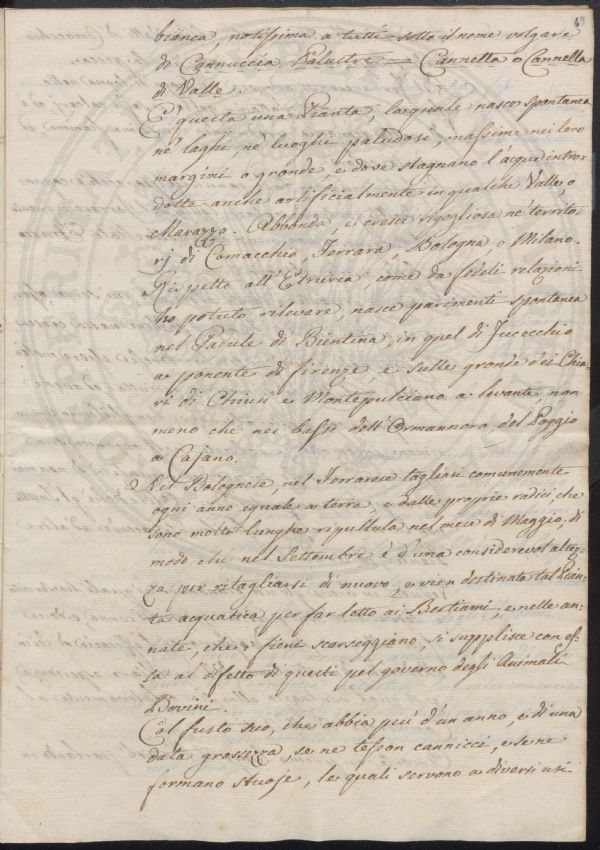 43
bianca, notissima a tutti sotto il nome volgare
di Cannuccia Palustre = Cannella o Cannella
di Valle.
E' questa una Pianta, laquale nasce spontanea
ne' laghi, ne' luoghi paludosi, massime nei loro
margini o gronde, e dove stagnano l'acque intro-
dotte anche artificialmente in qualche Valle, o
Marazzo. Abbonda, e cresce rigogliosa ne' territo-
rj di Comacchio, Ferrara, Bologna, e Milano.
Rispetto all'Etruria come da fedeli relazioni
ho potuto rilevare, nasce parimenti spontanea
nel Padule di Bientina, in quel di Fucecchio
a ponente di firenze e sulle gronde dei Chia-
ri di Chiusi e Montepulciano a levante, non
meno che nei bassi dell'Ormannoro, del Poggio
a Cajano.
Nel Bolognese, nel Ferrarese tagliasi comunemente
ogni anno eguale a terra, e dalle proprie radici che
sono molto lunghe ripullula nel mese di Maggio, di
modo che nel Settembre è d'una considerevol altez-
za per ritagliarsi di nuovo, e vien destinata tal Pian-
ta acquatica per far letto ai Bestiami, e nelle an-
nate, che i fieni scarseggiano, si supplisce con es-
sa al difetto di questi pel governo degli Animali
Bovini.
Col fusto suo, che abbia piu' d'un anno, e di una
data grossezza, se ne tesson cannicci, e se ne
formano stuoje, le quali servono a diversi usi